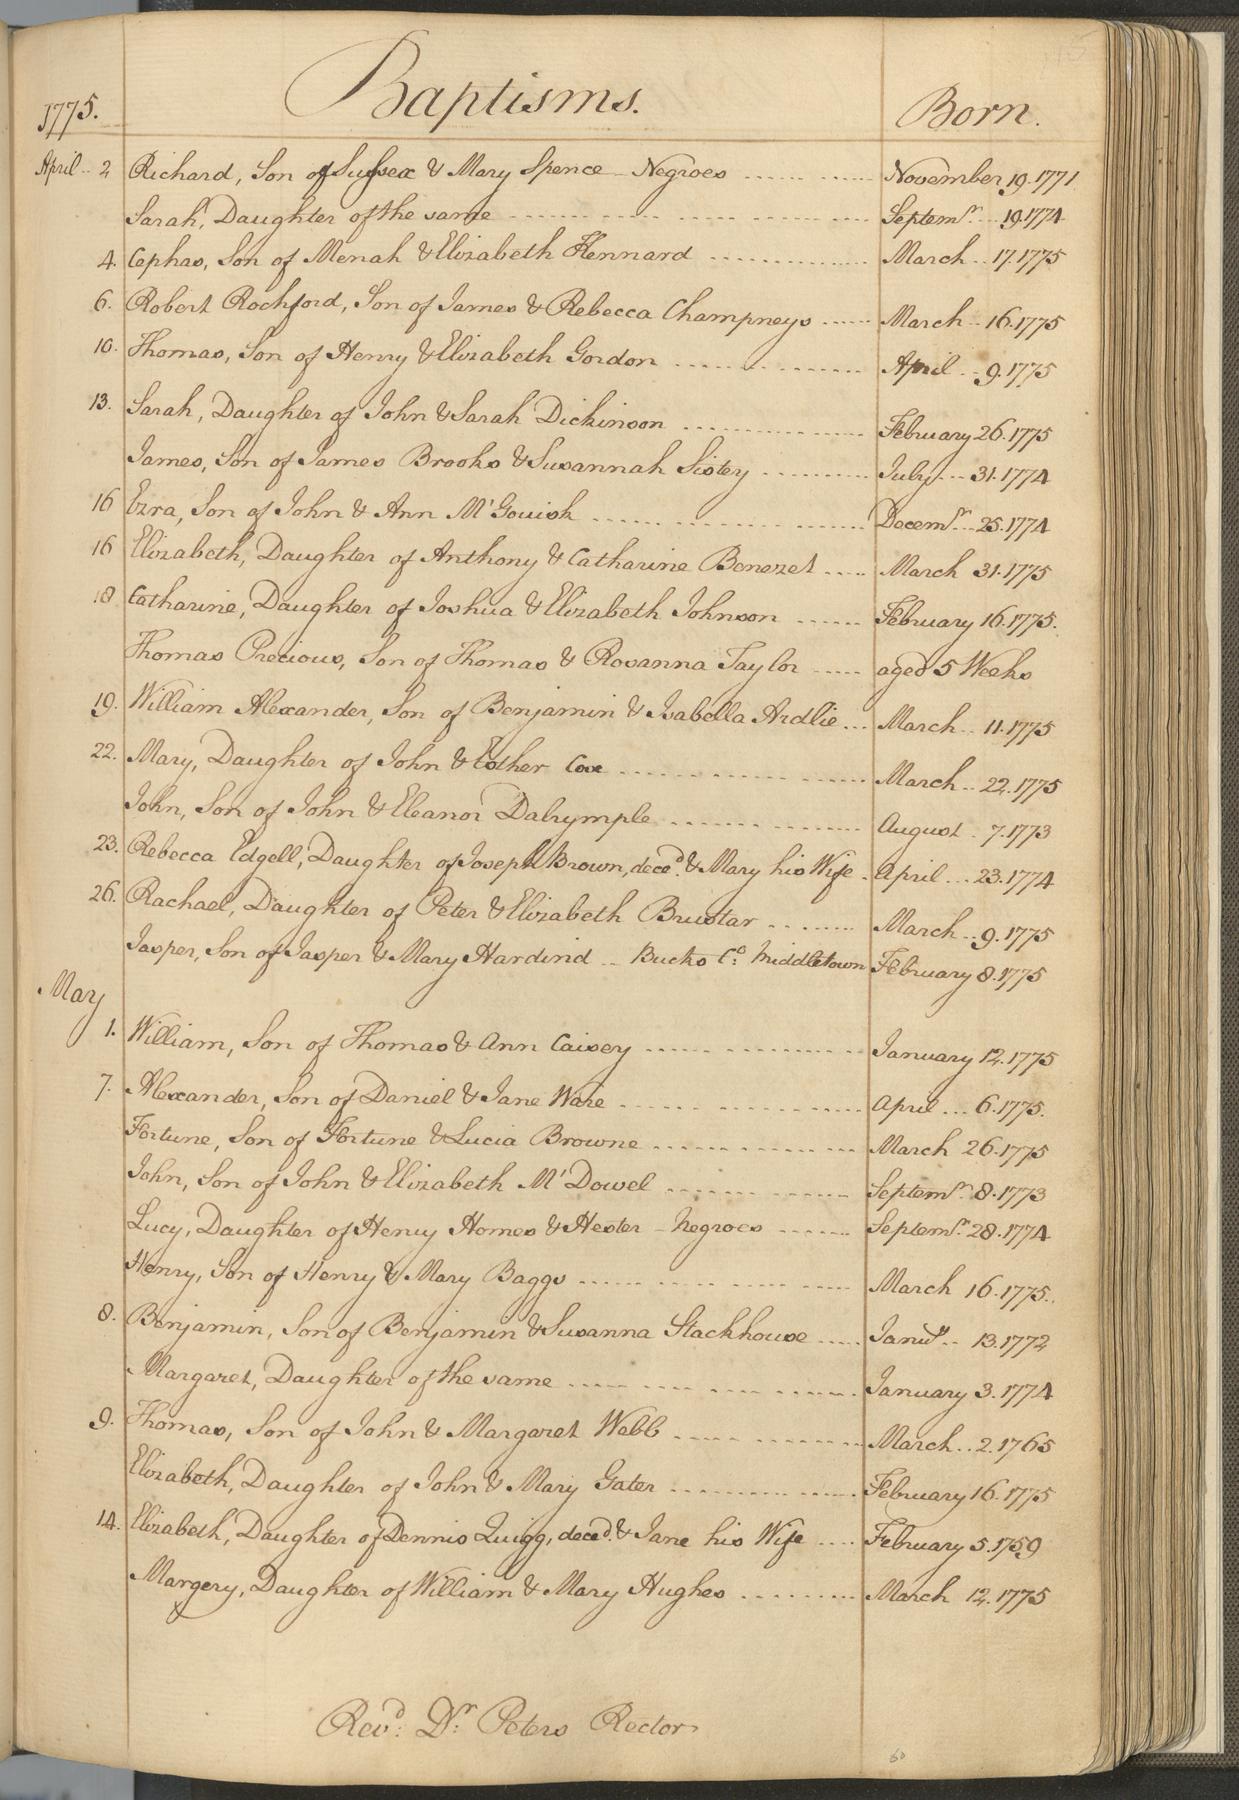 1775. Baptisms. Born.
April .. 2 Richard, Son of Sussex & Mary Spence _ Negroes ...... November 19. 1771
Sarah, Daughter of the same ...... Septemr. ... 19. 1774
4. Cephas, Son of Menah & Elizabeth Kennard ...... March .. 17. 1775
6. Robert Rochford, Son of James & Rebecca Champneys ...... March .. 16. 1775
10. Thomas, Son of Henry & Elizabeth Gordon ...... April .. 9. 1775
13. Sarah, Daughter of John & Sarah Dickinson ...... February 26. 1775
James, Son of James Brooks & Susannah Sistey ...... July ... 31. 1774
16 Ezra, Son of John & Ann M'Gouish ...... Decemr. .. 25. 1774
16 Elizabeth, Daughter of Anthony & Catharine Benezet .... March 31. 1775
18 Catharine, Daughter of Joshua & Elizabeth Johnson ...... February 16. 1775.
Thomas Precious, Son of Thomas & Rosanna Taylor ..... aged 5 Weeks
19. William Alexander, Son of Benjamin & Isabella Ardlie ... March .. 11. 1775
22. Mary, Daughter of John & Esther Coxe ...... March .. 22. 1775
John, Son of John & Eleanor Dalrymple ...... August . 7. 1773
23. Rebecca Edgell, Daughter of Joseph Brown, decd. & Mary his Wife . April ... 23. 1774
26. Rachael, Daughter of Peter & Elizabeth Brustar ...... March .. 9. 1775
Jasper, Son of Jasper & Mary Hardind .. Bucks Co. Middletown February 8. 1775
May
1. William, Son of Thomas & Ann Caisey ...... January 12. 1775
7. Alexander, Son of Daniel & Jane Ware ...... April ... 6. 1775.
Fortune, Son of Fortune & Lucia Browne ...... March 26. 1775
John, Son of John & Elizabeth M'Dowel ...... Septemr. 8. 1773
Lucy, Daughter of Henry Homes & Hester _ Negroes ...... Septemr. 28. 1774
Henry, Son of Henry & Mary Baggs ...... March 16. 1775.
8. Benjamin, Son of Benjamin & Susanna Stackhouse ..... Janury .. 13. 1772
Margaret, Daughter of the same ...... January 3. 1774
9. Thomas, Son of John & Margaret Webb ...... March .. 2. 1765
Elizabeth, Daughter of John & Mary Gater ...... February 16. 1775
14. Elizabeth, Daughter of Dennis Quigg, decd. & Jane his Wife .... February 5. 1759
Margery, Daughter of William & Mary Hughes ...... March 12. 1775
Revd. Dr. Peters Rector
60